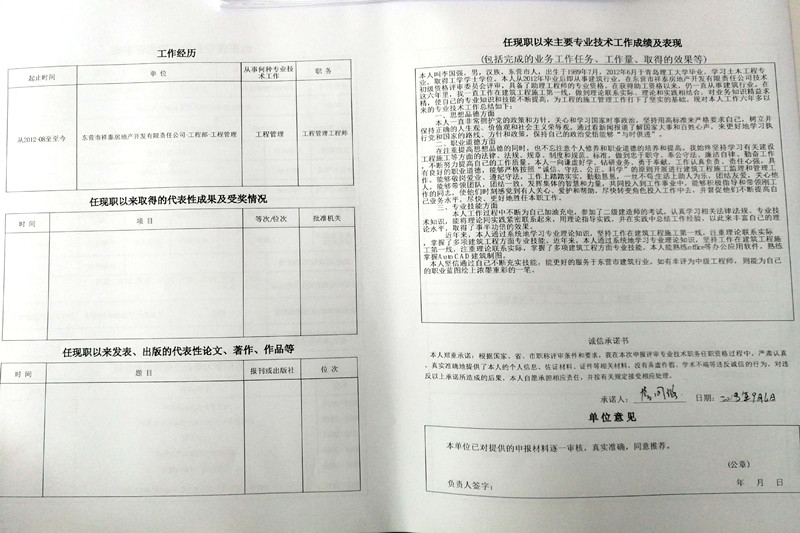 工作经历
起止时间
单 位
从事何种专业技
术工作
职 务
从2012-08至至今
东营市祥泰房地产开发有限责任公司-工程部-工程管理
工程管理
工程管理工程师
任现职以来取得的代表性成果及受奖情况
时 间
项 目
等次/位次
批准机关
任现职以来发表、出版的代表性论文、著作、作品等
时 间
题 目
报刊或出版社
位 次
任现职以来主要专业技术工作成绩及表现
(包括完成的业务工作任务、工作量、取得的效果等)
本人叫李国强,男,汉族,东营市人,出生于1989年7月,2012年6月于青岛理工大学毕业,学习土木工程专
业,取得工学学士学位。本人从2012年毕业后即从事建筑行业,在东营市祥泰房地产开发有限责任公司技术
初级资格评审委员会评审,具备了助理工程师的专业资格,在获得助工资格以来,仍一直从事建筑行业。在
这六年里,我一直工作在建筑工程施工第一线,做到理论联系实际、理论和实践相结合,对业务知识精益求
精,使自己的专业知识和技能不断提高,为工程的施工管理工作打下了坚实的基础。现对本人工作六年多以
来的专业技术工作总结如下:
一、思想品德方面
本人一直非常拥护党的政策和方针,关心和学习国家时事政治,坚持用高标准来严格要求自己,树立并
保持正确的人生观、价值观和社会主义荣辱观。通过看新闻报道了解国家大事和百姓心声,来更好地学习执
行党和国家的路线、方针和政策,保持自己的政治觉悟能够“与时俱进”。
二、职业道德方面
在注重提高思想品德的同时,也不忘注意个人修养和职业道德的培养和提高,我始终坚持学习有关建设
工程施工等方面的法律、法规、规章、制度和规范、标准,做到忠于职守、奉公守法、廉洁自律、勤奋工作
有良好的职业道德,能够严格按照“诚信、守法、公正、科学”的原则开展进行建筑工程施工监理和管理工
三、专业技能方面
本人工作过程中不断为自己加油充电,参加了二级建造师的考试。认真学习相关法律法规、专业技
术知识,能将理论同实践紧密联系起来,用理论指导实践,并在实践中总结工作经验,以此来丰富自己的理
论水平,取得了事半功倍的效果。
近年来,本人通过系统地学习专业理论知识,坚持工作在建筑工程施工第一线,注重理论联系实际
,掌握了多项建筑工程方面专业技能。近年来,本人通过系统地学习专业理论知识,坚持工作在建筑工程施
工第一线,注重理论联系实际,掌握了多项建筑工程方面专业技能。本人能熟练office等办公应用软件,熟练
掌握AutoCAD建筑制图。
本人坚信通过自己不断充实技能,能更好的服务于东营市建筑行业。如有幸评为中级工程师,则能为自己
的职业蓝图绘上浓墨重彩的一笔。
诚信承诺书
本人郑重承诺:根据国家、省、市职称评审条件和要求,我在本次申报评审专业技术职务任职资格过程中,严肃认真
、真实准确地提供了本人的个人信息、佐证材料、证件等相关材料,没有弄虚作假、学术不端等违反诚信的行为,对违
反以上承诺所造成的后果,本人自愿承担相应责任,并按有关规定接受相应处理。
承诺人: 日期:
单位意见
本单位已对提供的申报材料逐一审核,真实准确,同意推荐。
(公章)
负责人签字: 年 月 日